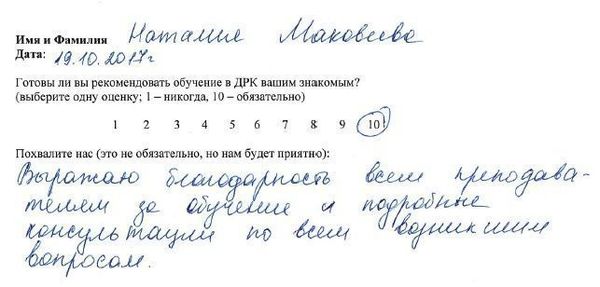 Имя и Фамилия Наталия Маковеева
Дата: 19.10.2017г
Готовы ли вы рекомендовать обучение в ДРК вашим знакомым?
(выберите одну оценку; 1 – никогда, 10 – обязательно)
1 2 3 4 5 6 7 8 9 10
Похвалите нас (это не обязательно, но нам будет приятно):
Выражаю благодарность всем преподава-
телям за обучение и подробные
консультации по всем возникшим
вопросам.